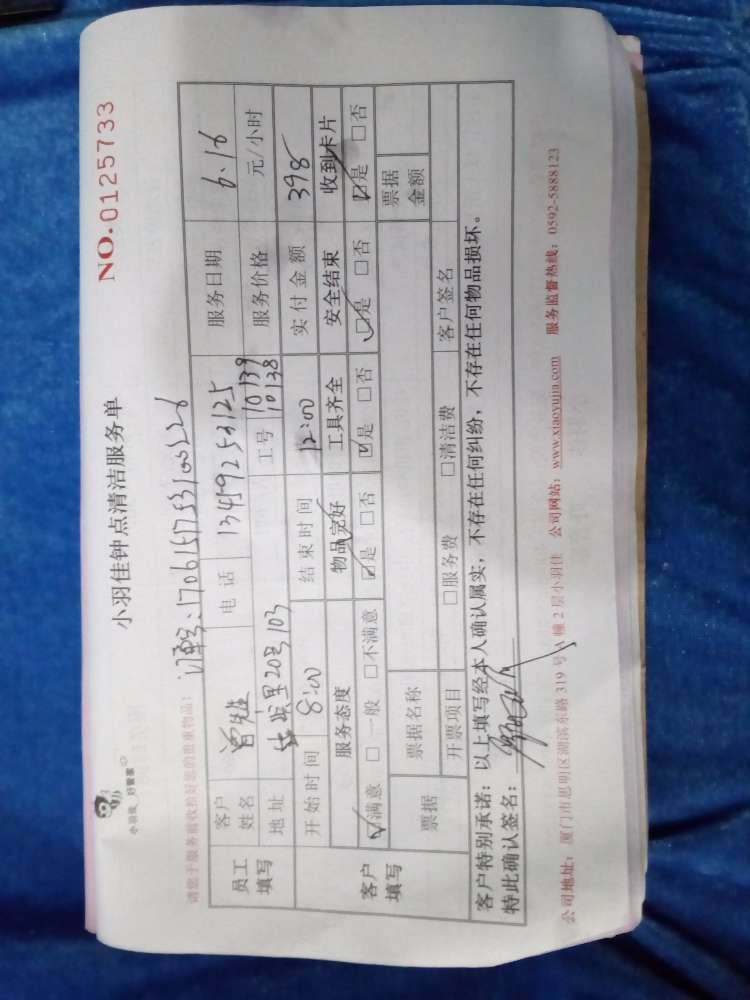 小羽佳 好管家
小羽佳钟点清洁服务单
NO.0125733
请您于服务前收拾好您的贵重物品!
订单号:17061517531005226
员工填写
客户姓名 曾先生 电话 13459253125 服务日期 6.16
地址 20号103 工号 10139 10138 服务价格 元/小时
客户填写
开始时间 8:00 结束时间 12:00 实付金额 398
服务态度 物品完好 工具齐全 安全结束 收到卡片
☑满意 □一般 □不满意 ☑是 □否 ☑是 □否 ☑是 □否 ☑是 □否
票据 票据名称 票据金额
开票项目 □服务费 □清洁费 客户签名
客户特别承诺:以上填写经本人确认属实,不存在任何纠纷,不存在任何物品损坏。
特此确认签名:
公司地址:厦门市思明区湖滨东路 319 号 A 幢 2 层小羽佳 公司网站:www.xiaoyujia.com 服务监督热线:0592-5888123